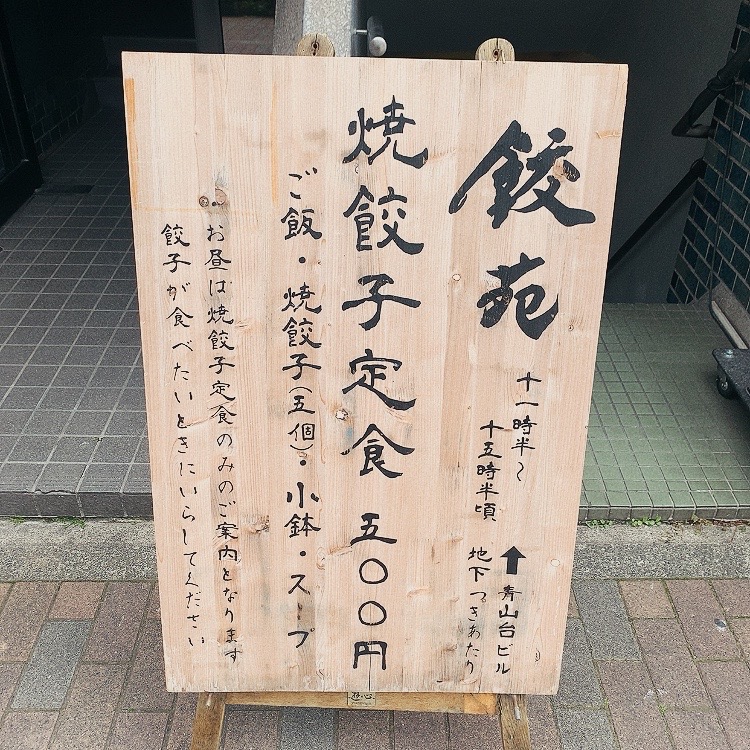 餃苑
十一時半〜
十五時半頃
↑青山台ビル
地下つきあたり
焼餃子定食 五〇〇円
ご飯・焼餃子(五個)・小鉢・スープ
お昼は焼餃子定食のみのご案内となります
餃子が食べたいときにいらしてください